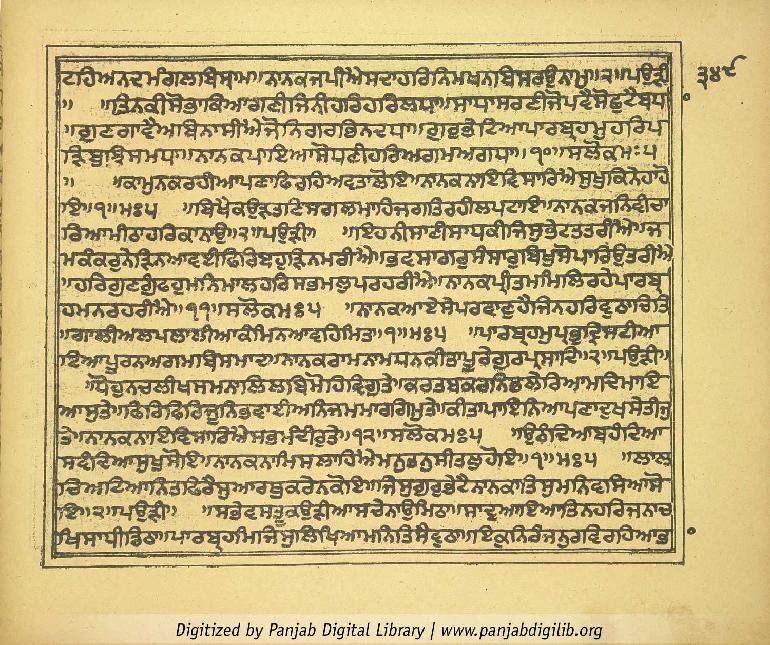 ਟਹਿਅਨਦਮੰਗਲਬਿਸ੍ਰਾਮ॥ਨਾਨਕਜਪੀਐਸਦਾਹਰਿਨਿਮਖਨਬਿਸਰਉਨਾਮੁ॥੨॥ਪਉੜੀ ੩੪੯
॥ ਤਿਨਕੀਸੋਭਾਕਿਆਗਣੀਜਿਨੀਹਰਿਹਰਿਲਧਾ॥ਸਾਧਾਸਰਣੀਜੋਪਵੈਸੋਛੁਟੈਬਧਾ
॥ਗੁਣਗਾਵੈਅਬਿਨਾਸੀਐਜੋਨਿਗਰਭਿਨਦਧਾ॥ਗੁਰੁਭੇਟਿਆਪਾਰਬ੍ਰਹਮੁਹਰਿਪ
ੜਿਬੁਝਿਸਮਧਾ॥ਨਾਨਕਪਾਇਆਸੋਧਣੀਹਰਿਅਗਮਅਗਾਧਾ॥੧੦॥ਸਲੋਕਮਃ੫
॥ ਕਾਮੁਨਕਰਹੀਆਪਣਾਫਿਰਹਿਅਵਤਾਲੋਇ॥ਨਾਨਕਨਾਇਵਿਸਾਰਿਐਸੁਖੁਕਿਨੇਹਾਹੋ
ਇ॥੧॥ਮਃ੫ ॥ਬਿਖੈਕਉੜਤਣਿਸਗਲਮਾਹਿਜਗਤਿਰਹੀਲਪਟਾਇ॥ਨਾਨਕਜਨਿਵੀਚਾ
ਰਿਆਮੀਠਾਹਰਿਕਾਨਾਉ॥੨॥ਪਉੜੀ॥ ॥ਇਹਨੀਸਾਣੀਸਾਧਕੀਜਿਸੁਭੇਟਤਤਰੀਐ॥ਜ
ਮਕੰਕਰੁਨੇੜਿਨਆਵਈਫਿਰਿਬਹੁੜਿਨਮਰੀਐ॥ਭਵਸਾਗਰੁਸੰਸਾਰੁਬਿਖੁਸੋਪਾਰਿਉਤਰੀਐ
॥ਹਰਿਗੁਣਗੁੰਫਹੁਮਨਿਮਾਲਹਰਿਸਭਮਲੁਪਰਹਰੀਐ॥ਨਾਨਕਪ੍ਰੀਤਮਮਿਲਿਰਹੇਪਾਰਬ੍ਰ
ਹਮਨਰਹਰੀਐ॥੧੧॥ਸਲੋਕਮਃ੫ ॥ਨਾਨਕਆਏਸੇਪਰਵਾਣੁਹੈਜਿਨਹਰਿਵੁਠਾਚਿਤਿ
॥ਗਾਲੀਅਲਪਲਾਲੀਆਕੰਮਿਨਆਵਹਿਮਿਤ॥੧॥ਮਃ੫ ॥ਪਾਰਬ੍ਰਹਮੁਪ੍ਰਭੁਦ੍ਰਿਸਟੀਆ
ਇਆਪੂਰਨਅਗਮਬਿਸਮਾਦ॥ਨਾਨਕਰਾਮਨਾਮਧਨਕੀਤਾਪੂਰੇਗੁਰਪ੍ਰਸਾਦਿ॥੨॥ਪਉੜੀ॥
॥ਧੋਹੁਨਚਲੀਖਸਮਨਾਲਿਲਬਿਮੋਹਿਵਿਗੁਤੇ॥ਕਰਤਬਕਰਨਿਭਲੇਰਿਆਮਦਿਮਾਇ
ਆਸੁਤੇ॥ਫਿਰਿਫਿਰਿਜੂਨਿਭਵਾਈਅਨਿਜਮਮਾਰਗਿਮੁਤੇ॥ਕੀਤਾਪਾਇਨਿਆਪਣਾਦੁਖਸੇਤੀਜੁ
ਤੇ॥ਨਾਨਕਨਾਇਵਿਸਾਰਿਐਸਭਮੰਦੀਰੁਤੇ॥੧੨॥ਸਲੋਕਮਃ੫ ॥ਉਠੰਦਿਆਬਹੰਦਿਆ
ਸਵੰਦਿਆਸੁਖੁਸੋਇ॥ਨਾਨਕਨਾਮਿਸਲਾਹਿਐਮਨੁਤਨੁਸੀਤਲੁਹੋਇ॥੧॥ਮਃ੫ ॥ਲਾਲ
ਚਿਅਟਿਆਨਿਤਫਿਰੈਸੁਆਰਥੁਕਰੇਨਕੋਇ॥ਜਿਸੁਗੁਰੁਭੇਟੈਨਾਨਕਾਤਿਸੁਮਨਿਵਸਿਆਸੋ
ਇ॥੨॥ਪਉੜੀ॥ ॥ਸਭੇਵਸਤੂਕਉੜੀਆਸਚੇਨਾਉਮਿਠਾ॥ਸਾਦੁਆਇਆਤਿਨਹਰਿਜਨਾਚ
ਖਿਸਾਧੀਡਿਠਾ॥ਪਾਰਬ੍ਰਹਮਿਜਿਸੁਲਿਖਿਆਮਨਿਤਿਸੈਵੁਠਾ॥ਇਕੁਨਿਰੰਜਨੁਰਵਿਰਹਿਆਭ
Digitized by Panjab Digital Library | www.panjabdigilib.org